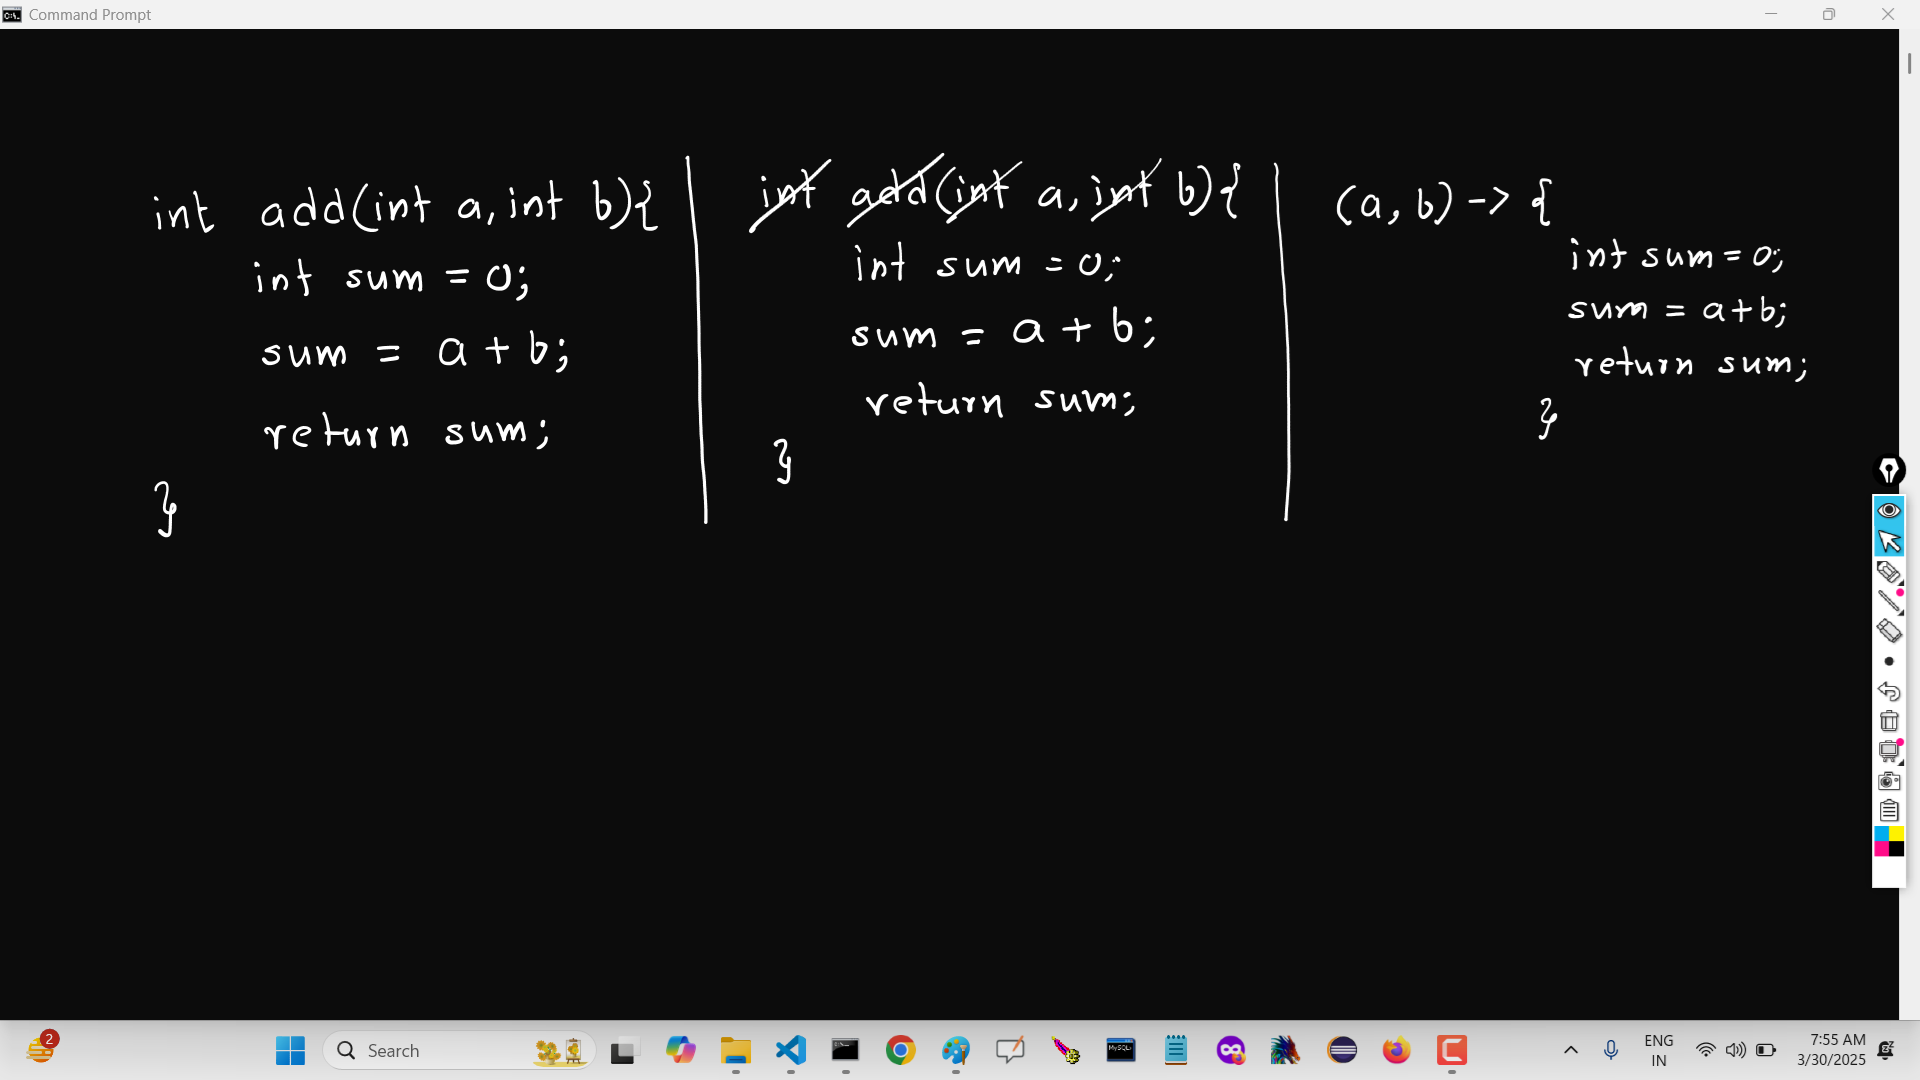 Command Prompt
int add(int a, int b){
int sum = 0;
sum = a + b;
return sum;
}
int add(int a, int b){
int sum = 0;
sum = a + b;
return sum;
}
(a, b) -> {
int sum = 0;
sum = a+b;
return sum;
}
2
Search
MySQL
ENG
IN
7:55 AM
3/30/2025